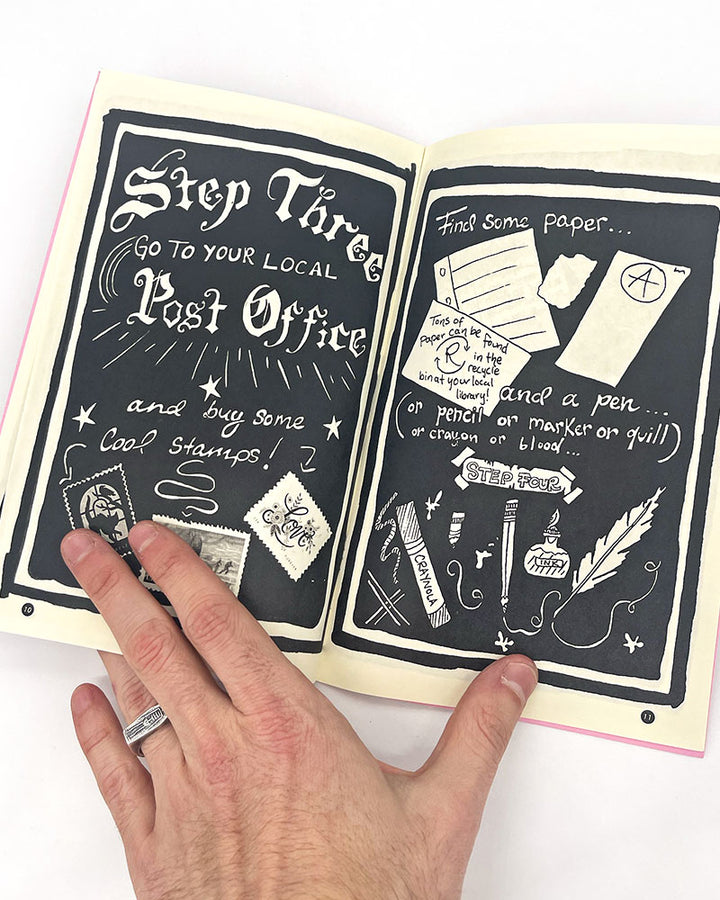 Step Three
GO TO YOUR LOCAL
Post Office
and buy some
Cool Stamps!
Love
10
Find some paper...
A
Tons of
paper can be found
R in the
recycle
bin at your local
library!
and a pen...
(or pencil or marker or quill)
(or crayon or blood...
STEP FOUR
CRAYNOLA
INK
11